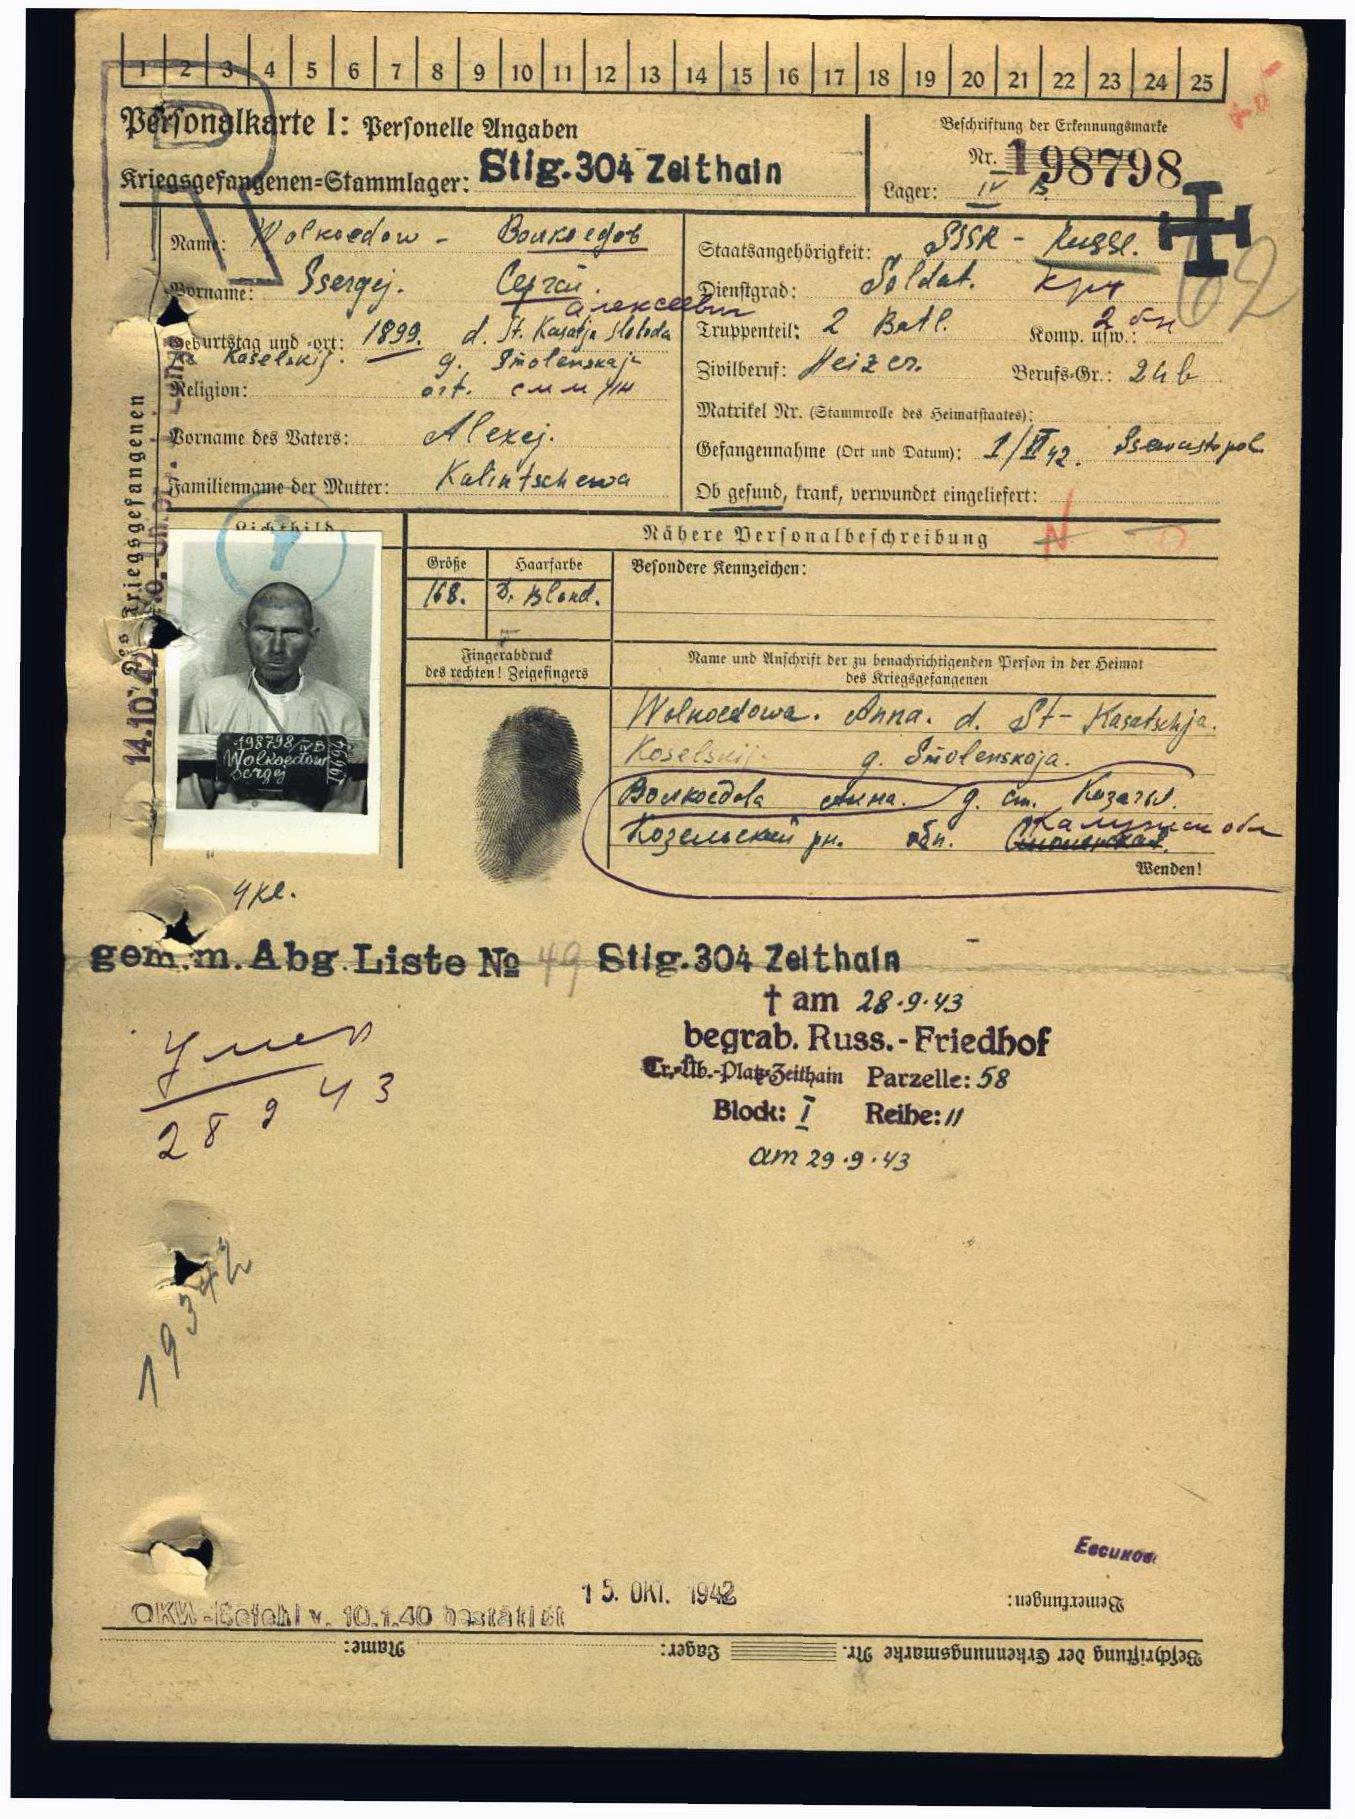 1 2 3 4 5 6 7 8 9 10 11 12 13 14 15 16 17 18 19 20 21 22 23 24 25
R
Personalkarte I: Personelle Angaben
Kriegsgefangenen=Stammlager: Stlg.304 Zeithain
Beschriftung der Erkennungsmarke
Nr. 198798
Lager: IV B
Name: Wolkoedow - Волкоедов
Vorname: Ssergej. Сергей.
Алексеевич
Geburtstag und -ort: 1899. d. St. Kasatja Sloboda
Koselskij. g. Smolenskaja
Religion: ort.
Vorname des Vaters: Alexej.
Familienname der Mutter: Kalintschewa
Staatsangehörigkeit: SSSR - Russe.
62
Dienstgrad: Soldat. кр
Truppenteil: 2 Batl. Komp. usw.: 2 бн
Zivilberuf: Heizer. Berufs=Gr.: 24 b
Matrikel Nr. (Stammrolle des Heimatstaates):
Gefangennahme (Ort und Datum): Ssewastopol
Ob gesund, krank, verwundet eingeliefert:
Des Kriegsgefangenen
14.10.42
Lichtbild
198798/IV B
Wolkoedow
Sergej
Nähere Personalbeschreibung
Größe Haarfarbe Besondere Kennzeichen:
168. D. Blond.
Fingerabdruck
des rechten! Zeigefingers
Name und Anschrift der zu benachrichtigenden Person in der Heimat
des Kriegsgefangenen
Wolkoedowa. Anna. d. St- Kasatschja.
Koselskij. g. Smolenskaja.
Волкоедова Анна. д. ст. Казач.
Козельский рн. обл. Калужск обл
Wenden!
4 Kl.
gem.m.Abg.Liste № 49 Stlg.304 Zeithain
† am 28.9.43
begrab. Russ.-Friedhof
Tr.-Üb.-Platz Zeithain Parzelle: 58
Block: I Reihe: 11
am 29.9.43
Умер
28 9 43
19342
Евсиков
15. OKT. 1942
OKW-Befehl v. 10.1.40 bestätigt
Bemerkungen:
Beschriftung der Erkennungsmarke Nr. Lager: Name: